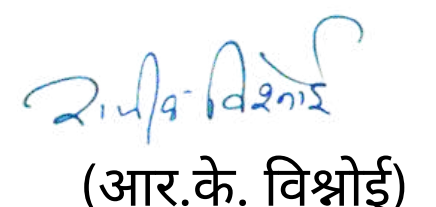 राजीव विश्नोई
(आर.के. विश्नोई)